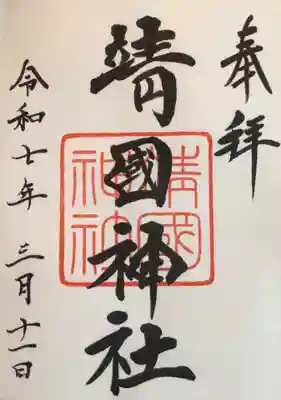 奉拝
靖國神社
靖國
神社
令和七年 三月十一日